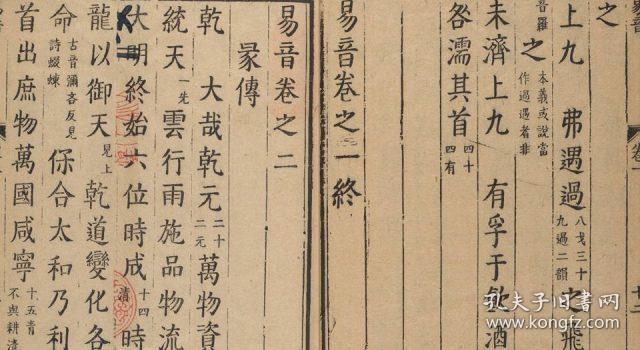 之
上九　弗遇過八戈三十九過二韻之飛
音羅之本義或說當作過遇者非
未濟上九　有孚于飲酒
咎濡其首四十四有
易音卷之一終
易音卷之二
彖傳
乾　大哉乾元二十二元萬物資
統天一先雲行雨施品物流
大明終始六位時成十四清時
龍以御天見上乾道變化各
命古音彌吝反見詩蝃蝀保合太和乃利
首出庶物萬國咸寧十五青不與耕清
孔夫子旧书网
www.kongfz.com